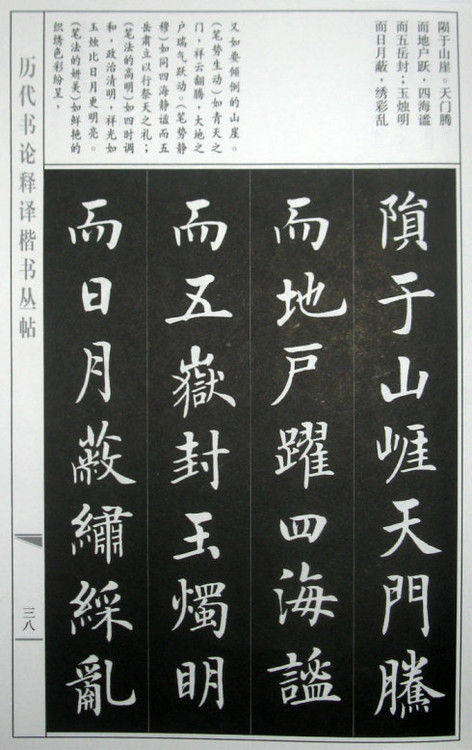 陨于山崖。天门腾
而地户跃,四海谧
而五岳封;玉烛明
而日月蔽,绣彩乱
又如要倾倒的山崖。
(笔势生动)如青天之
门,祥云翻腾,大地之
户瑞气跃动。(笔势静
穆)如同四海静谧而五
岳肃立以行祭天之礼;
(笔法的高明)如四时调
和,政治清明,祥光如
玉烛比日月更明亮。
(笔法的妍美)如鲜艳的
织绣色彩纷呈,
隕于山崕天門騰
而地戸躍四海謐
而五嶽封玉燭明
而日月蔽繡綵亂
历代书论释译楷书丛帖
三八